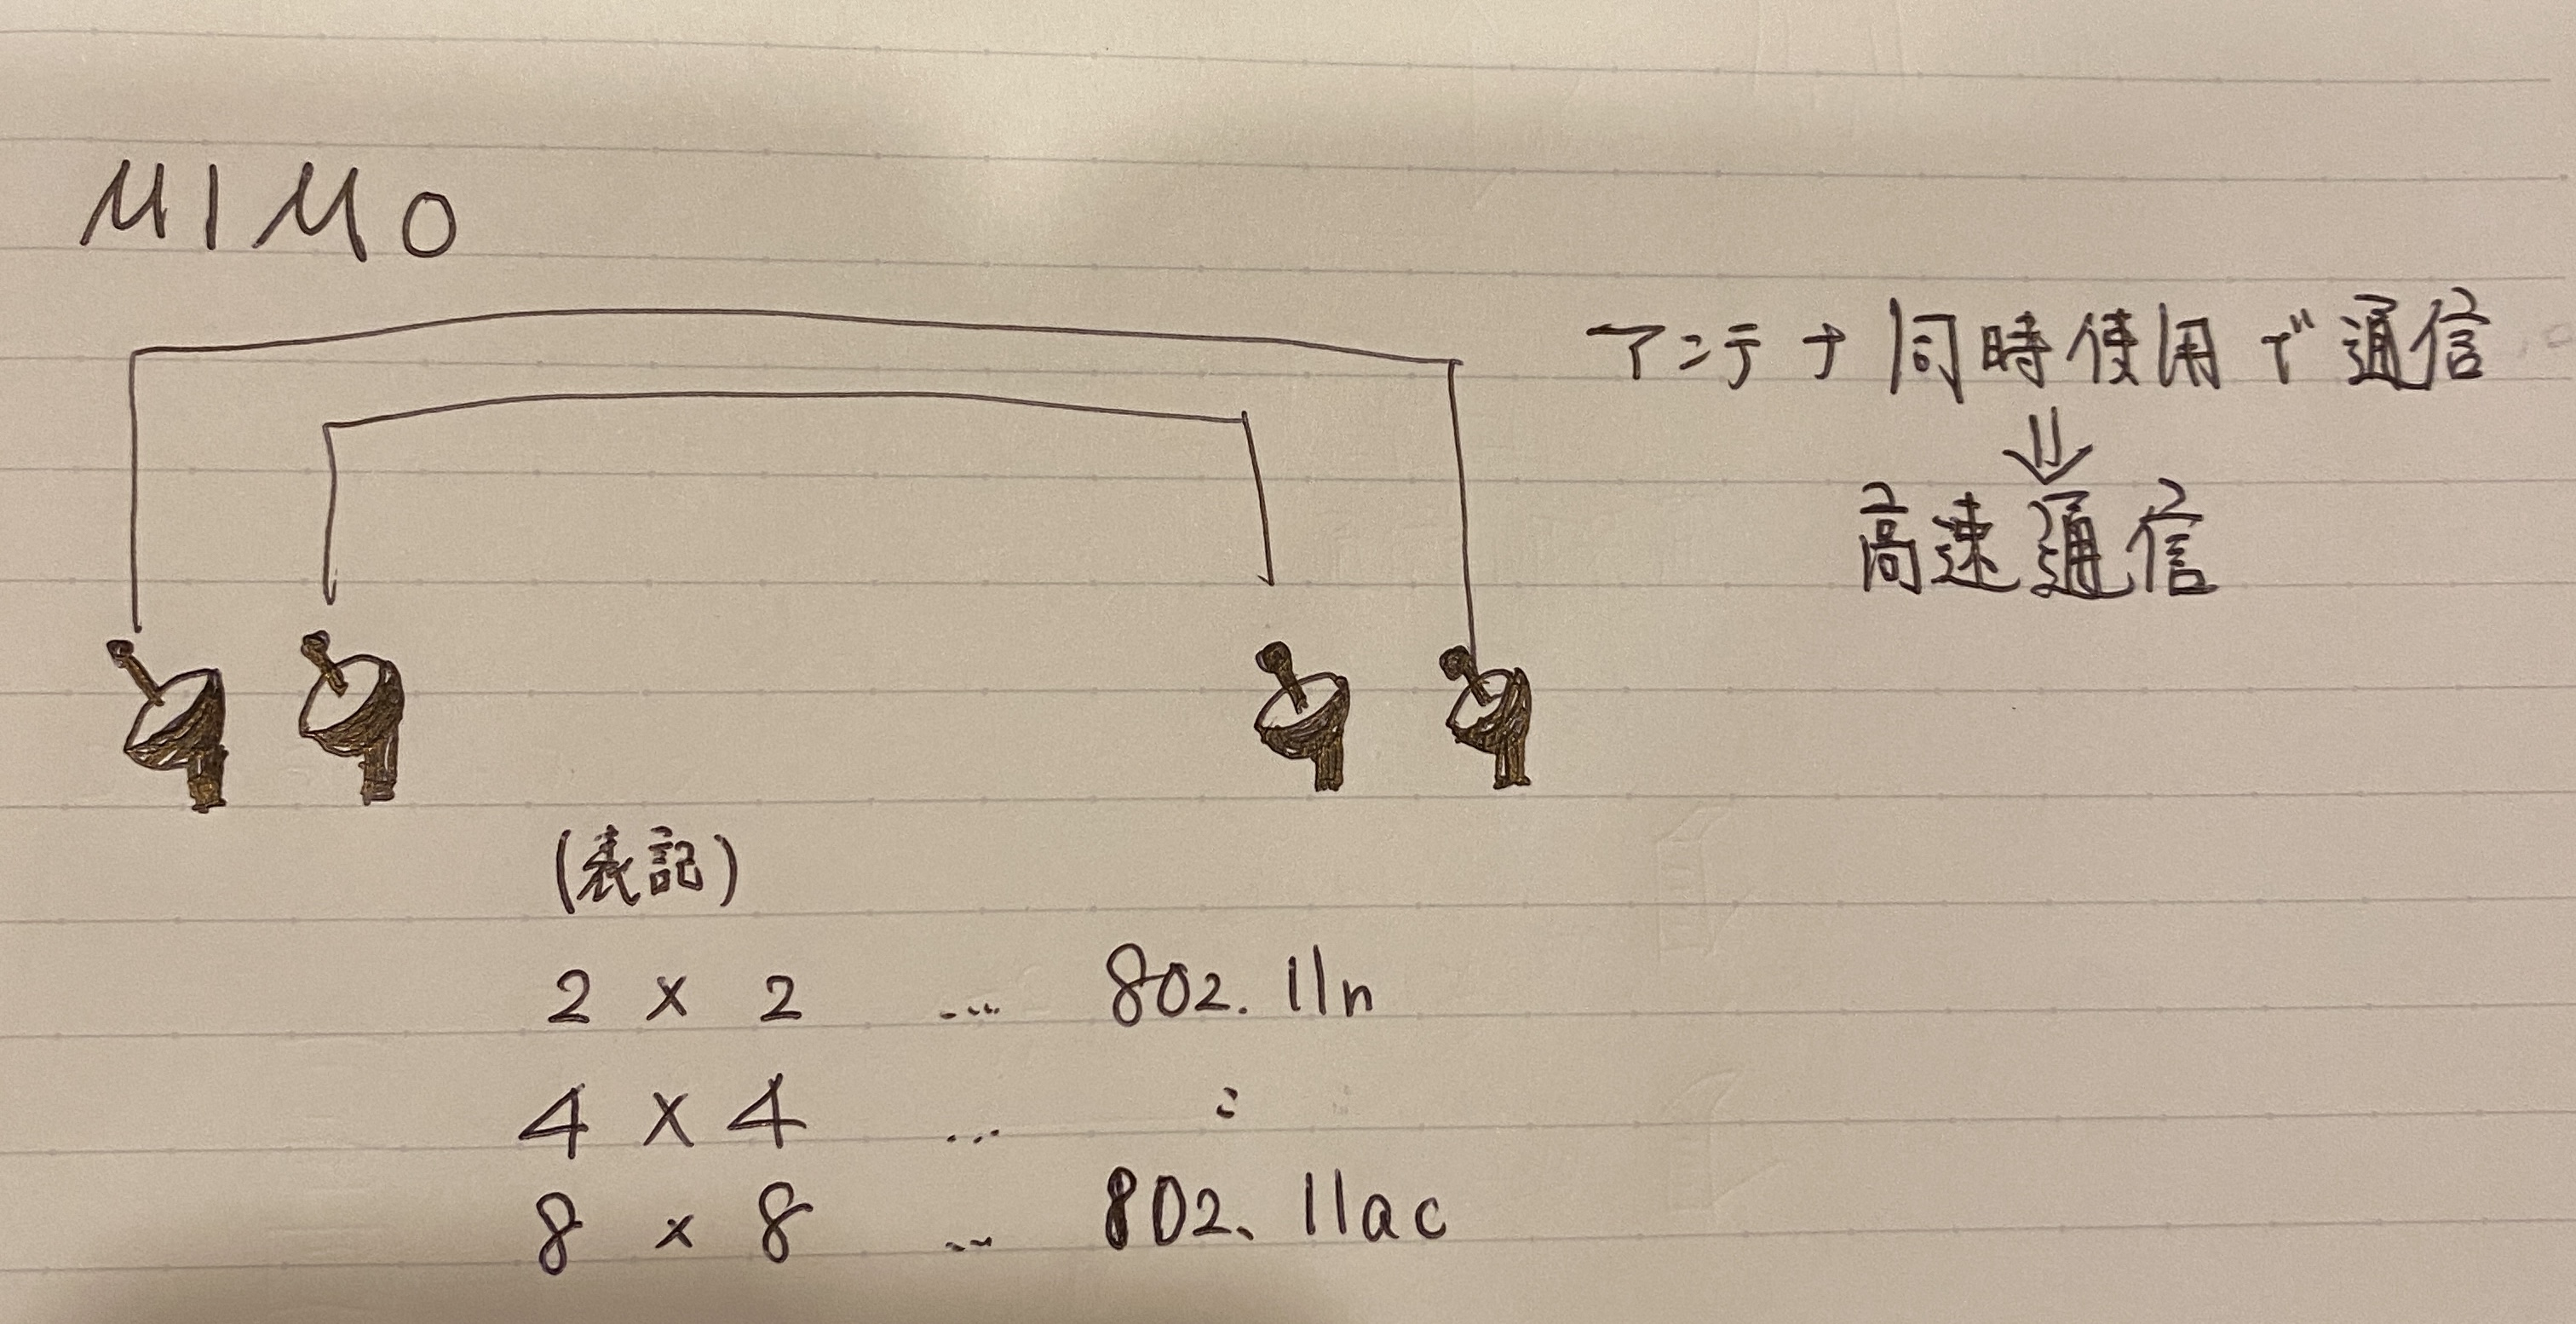 MIMO
アンテナ同時使用で通信
⇓
高速通信
(表記)
2 × 2 … 802.11n
4 × 4 … 〃
8 × 8 … 802.11ac